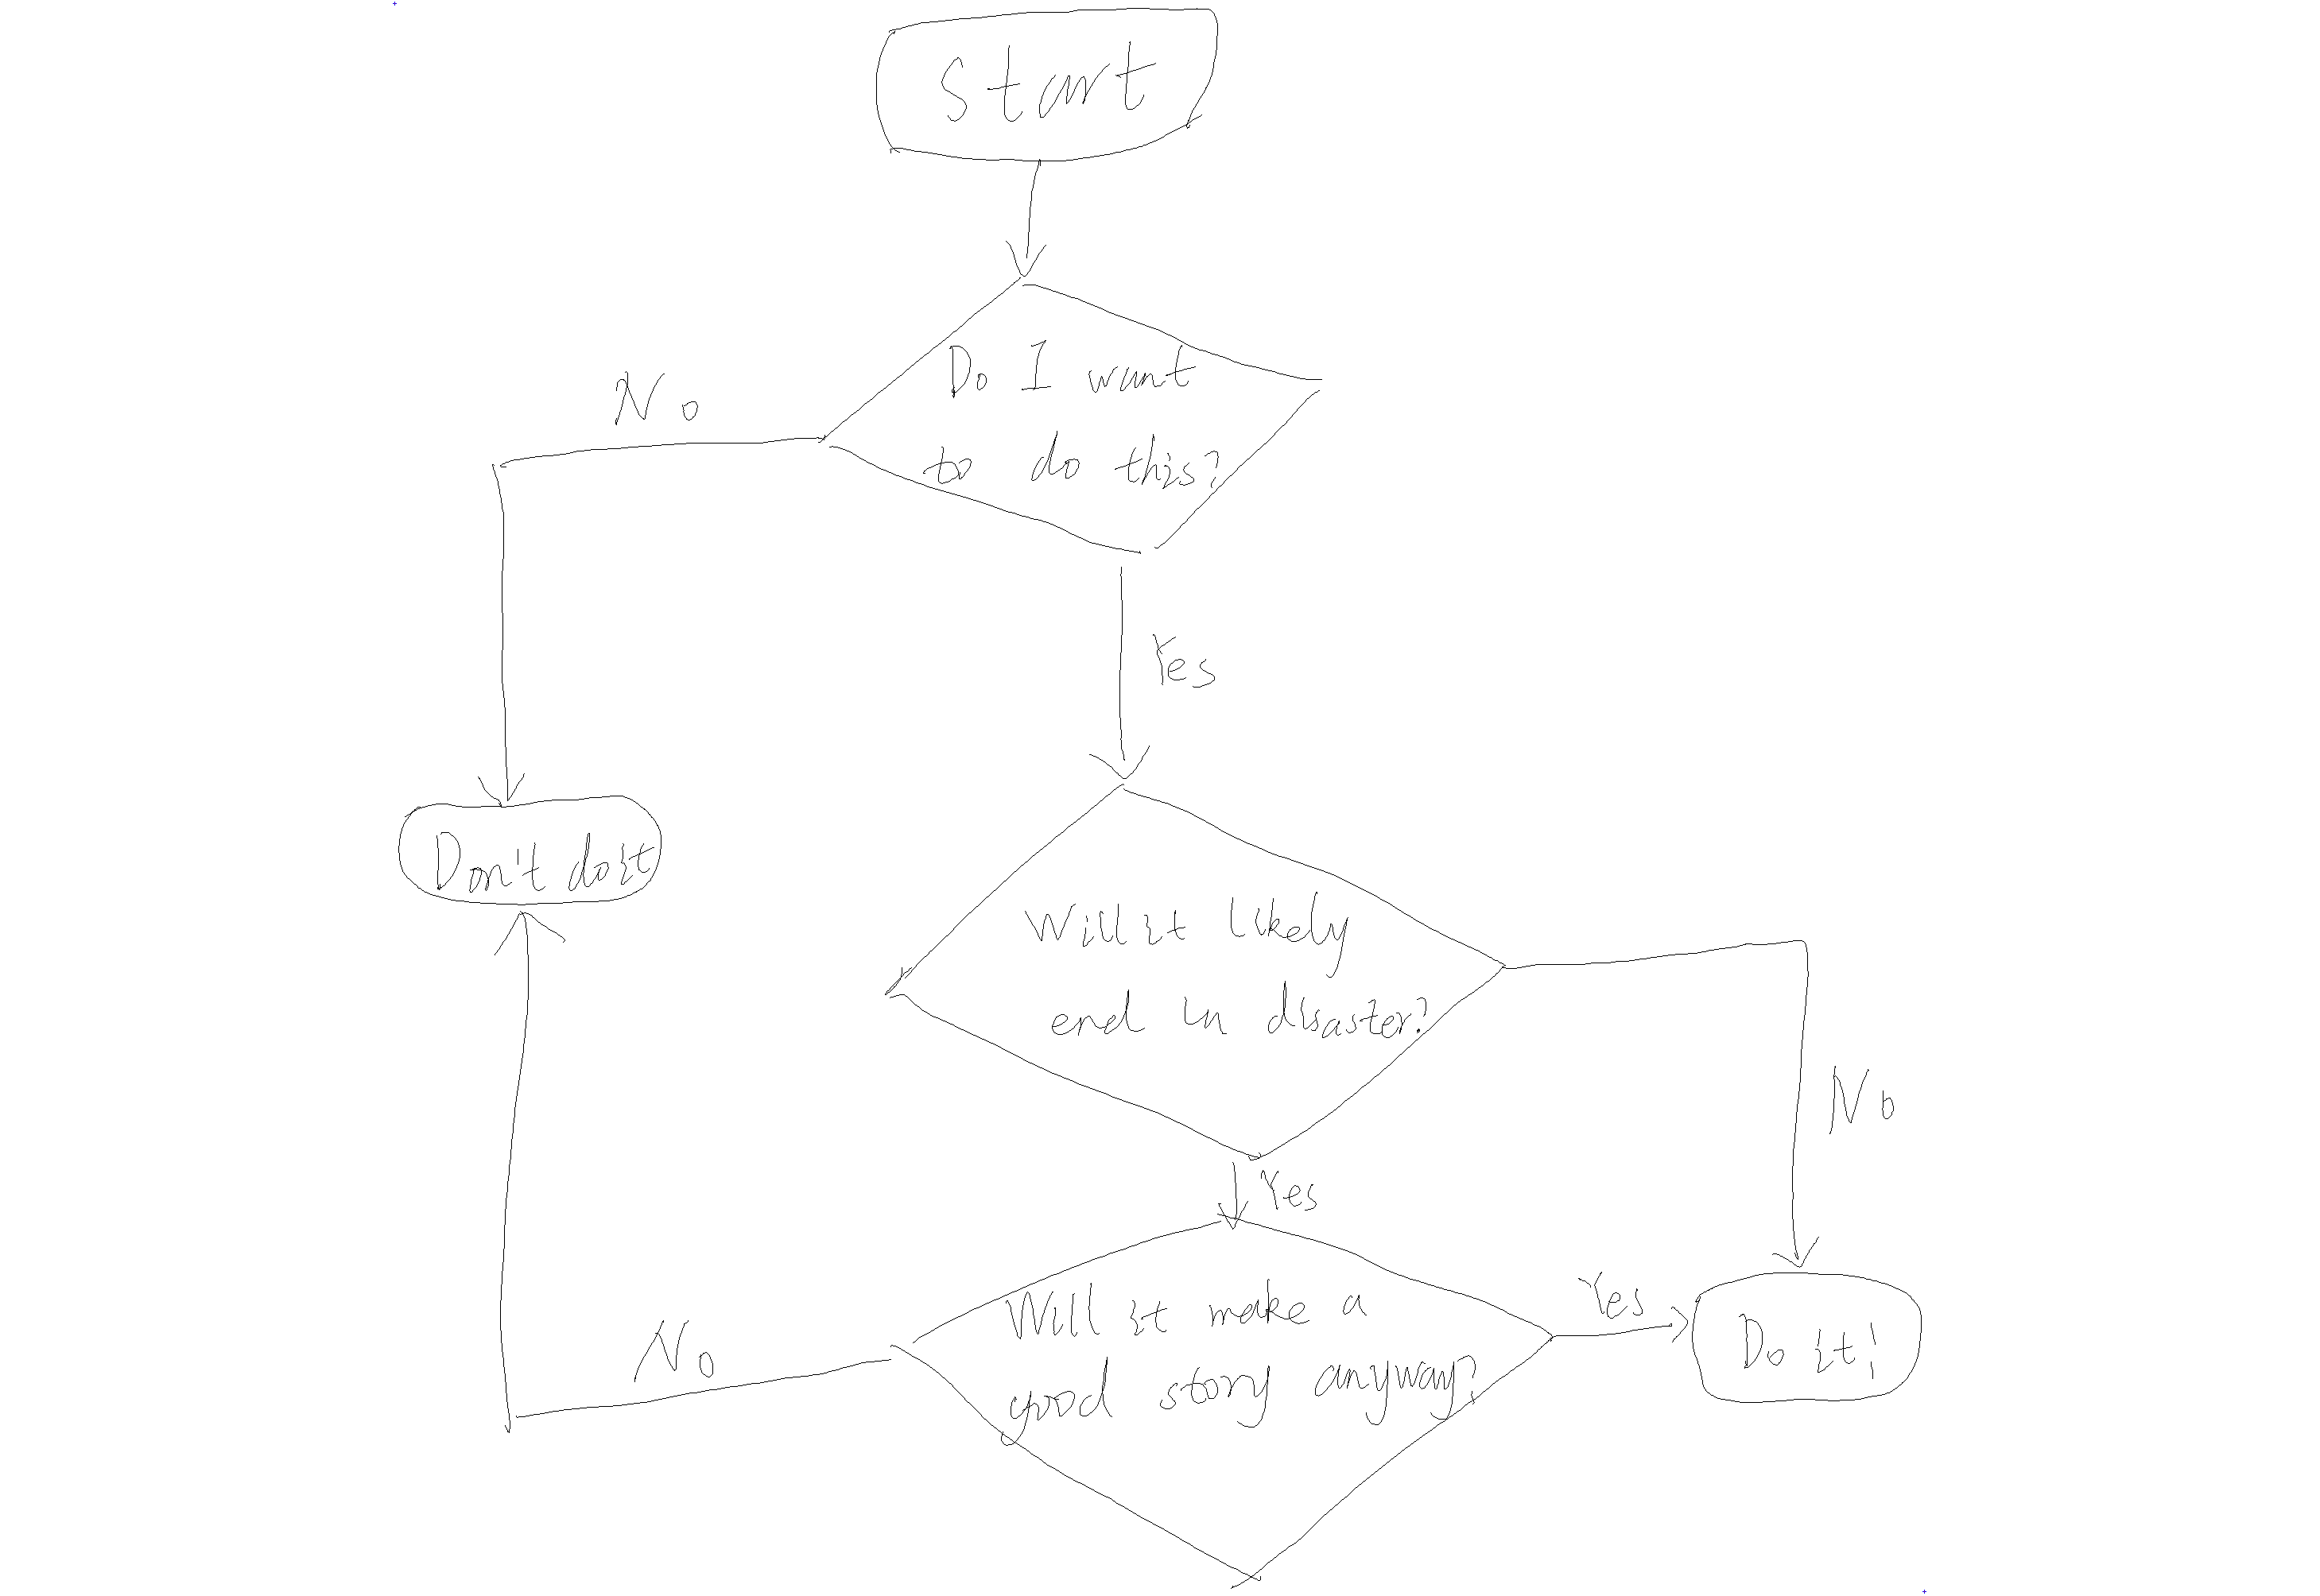 Start
Do I want
to do this?
No
Yes
Don't do it
Will it likely
end in disaster?
No
Yes
Will it make a
good story anyway?
No
Yes
Do it!